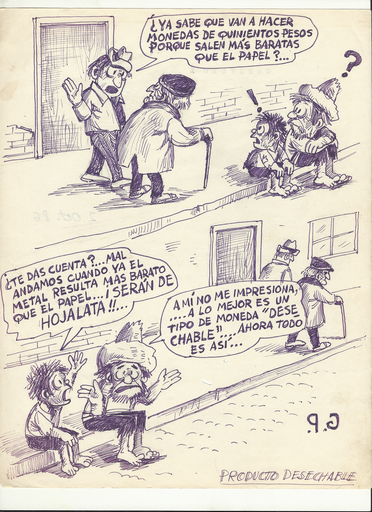 ¿YA SABE QUE VAN A HACER
MONEDAS DE QUINIENTOS PESOS
PORQUE SALEN MÁS BARATAS
QUE EL PAPEL?...
!
?
¿TE DAS CUENTA?...MAL
ANDAMOS CUANDO YA EL
METAL RESULTA MÁS BARATO
QUE EL PAPEL...¡SERÁN DE
HOJALATA!!...
A MÍ NO ME IMPRESIONA,
....A LO MEJOR ES UN
TIPO DE MONEDA "DESE
CHABLE"..... AHORA TODO
ES ASÍ...
G.P.
PRODUCTO DESECHABLE